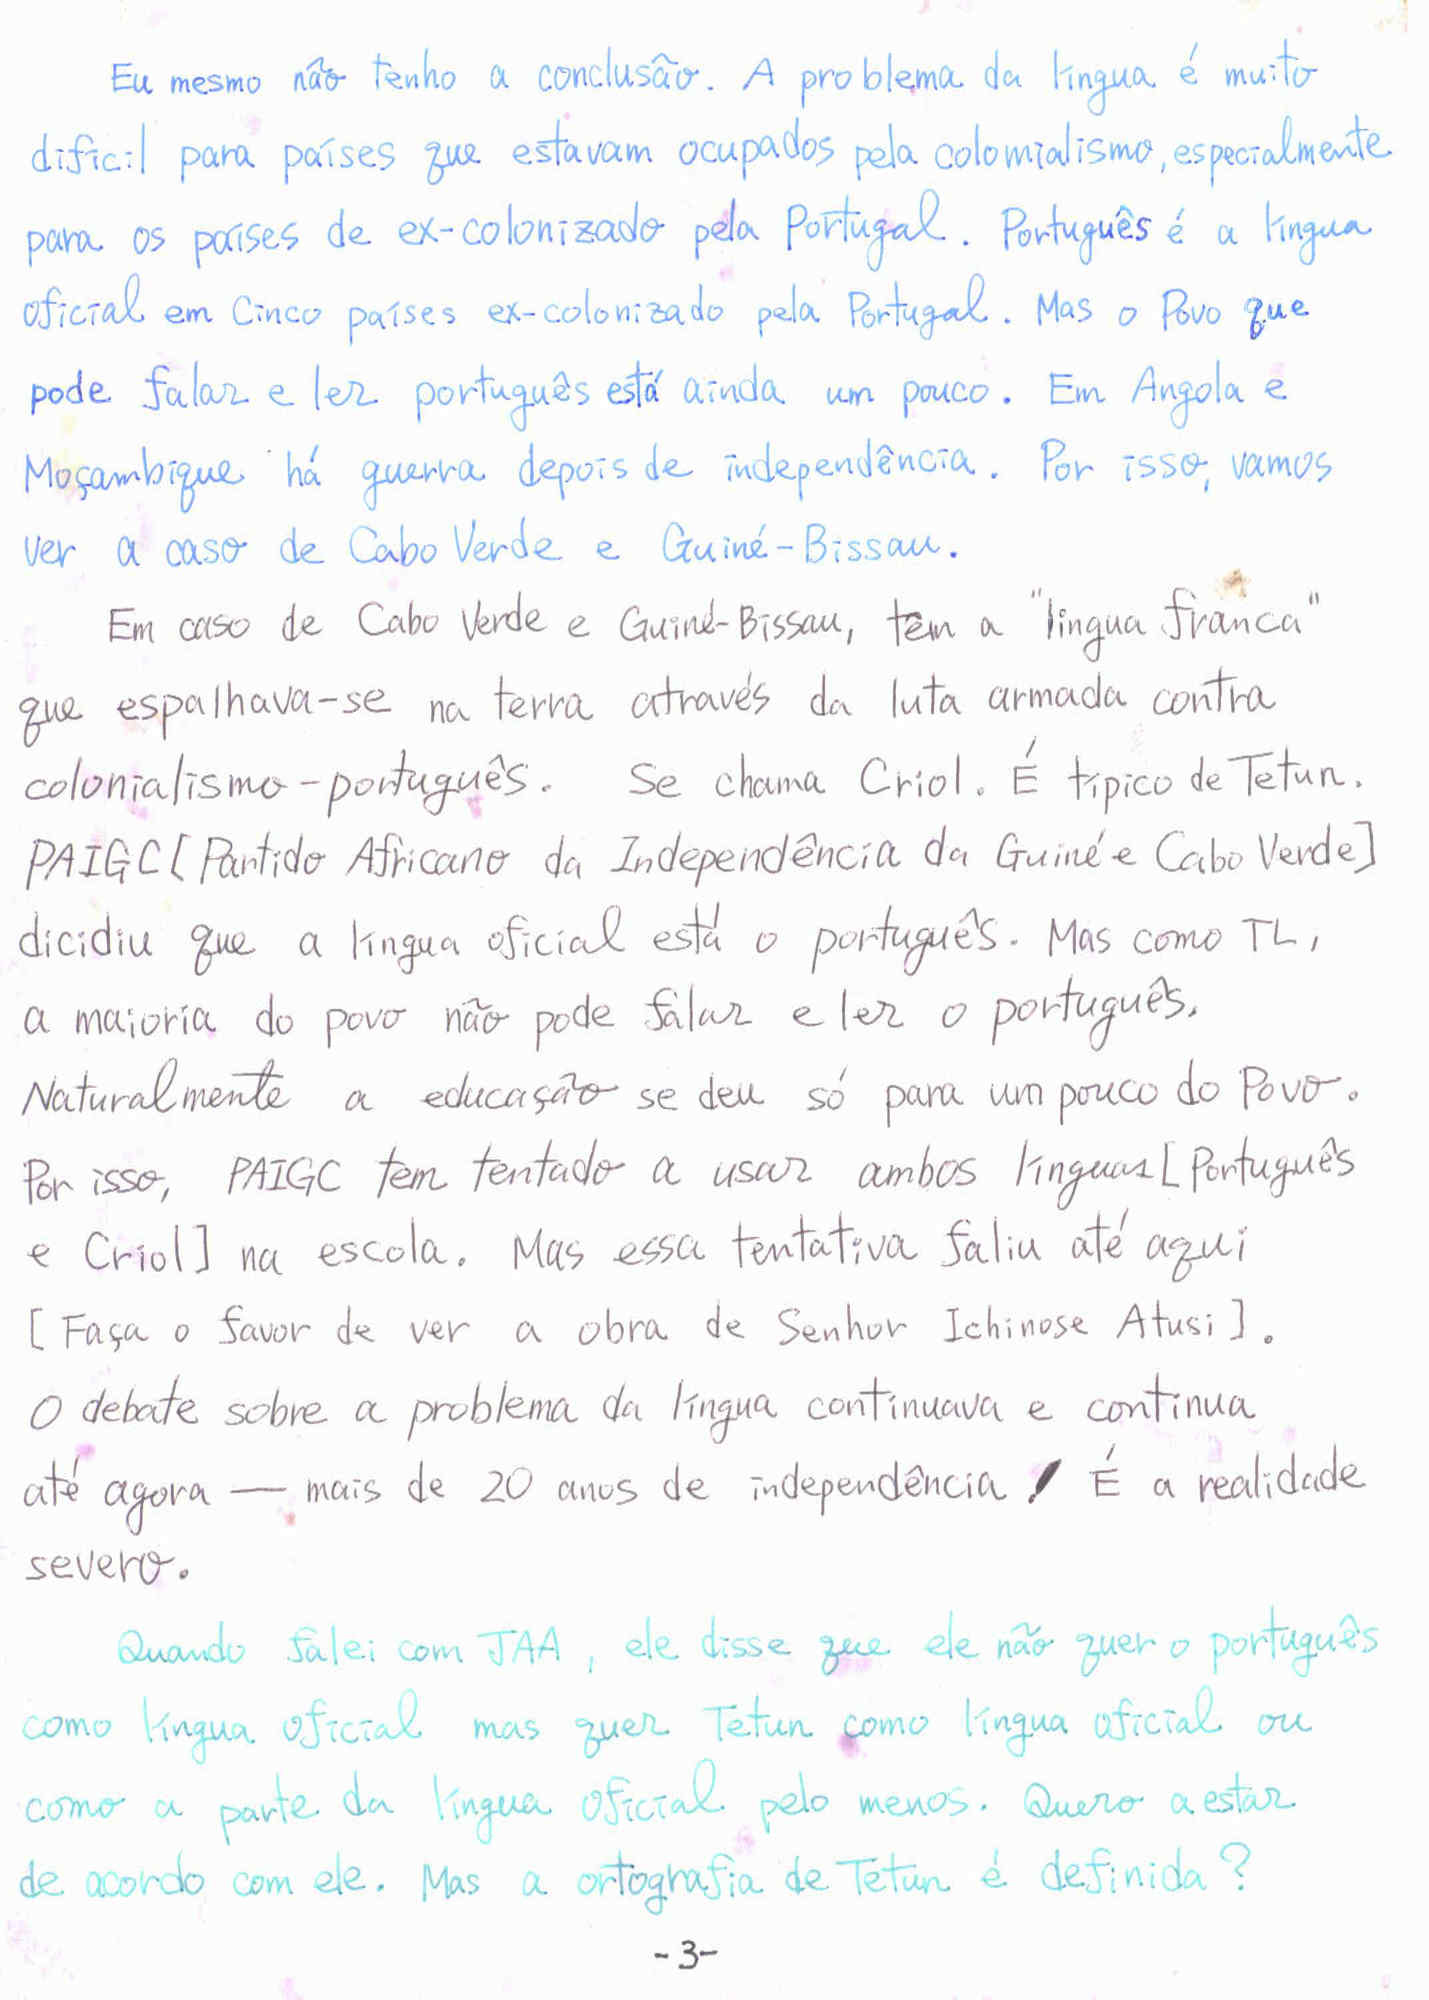 Eu mesmo não tenho a conclusão. A problema da língua é muito
dificil para países que estavam ocupados pela colomialismo, especialmente
para os países de ex-colonizado pela Portugal. Português é a língua
oficial em Cinco países ex-colonizado pela Portugal. Mas o Povo que
pode falar e ler português está ainda um pouco. Em Angola e
Moçambique há guerra depois de independência. Por isso, vamos
ver a caso de Cabo Verde e Guiné-Bissau.
Em caso de Cabo Verde e Guiné-Bissau, têm a "língua franca"
que espalhava-se na terra através da luta armada contra
colonialismo-português. Se chama Criol. É típico de Tetun.
PAIGC [Partido Africano da Independência da Guiné e Cabo Verde]
dicidiu que a língua oficial está o português. Mas como TL,
a maioria do povo não pode falar e ler o português.
Naturalmente a educação se deu só para um pouco do Povo.
Por isso, PAIGC tem tentado a usar ambos línguas [Português
e Criol] na escola. Mas essa tentativa faliu até aqui
[Faça o favor de ver a obra de Senhor Ichinose Atusi].
O debate sobre a problema da língua continuava e continua
até agora — mais de 20 anos de independência! É a realidade
severo.
Quando falei com JAA, ele disse que ele não quer o português
como língua oficial mas quer Tetun como língua oficial ou
como a parte da língua oficial pelo menos. Quero a estar
de acordo com ele. Mas a ortografia de Tetun é definida?
-3-